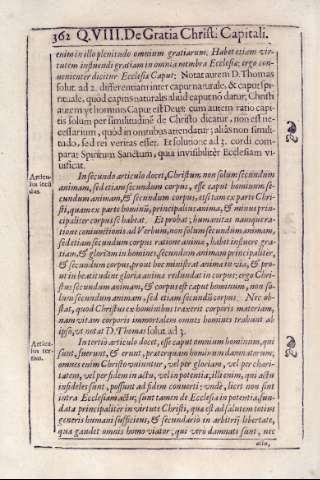 362 Q.VIII. De Gratia Christi Capitali.
enim in illo plenitudo omnium gratiarum, Habet etiam vir-
tutem influendi gratiam in omnia membra Ecclesiæ; ergo con-
uenienter dicitur Ecclesiæ Caput; Notat autem D. Thomas
solut. ad 2. differentiam inter caput naturale, & caput spiri-
tuale, quòd capitis naturalis aliud caput nõ datur; Christi
autem vt hominis Caput est Deus: cum autem ratio capi-
tis solum per similitudinẽ de Christo dicatur, non est ne-
cessarium, quòd in omnibus attendatur; aliàs non simili-
tudo, sed rei veritas esset. Et solutione ad 3. cordi com-
parat Spiritum Sanctum, quia inuisibilitèr Ecclesiam vi-
uificat.
Articu-
lus secũ
dus.
In secundo articulo docet, Christum non solum secundum
animam, sed etiam secundum corpus, esse caput hominum se-
cundum animam, & secundum corpus, etsi tam ex parte Chri-
sti, quam ex parte hominũ, principalius anima, & minus prin-
cipaliter corpus se habeat. Et probat; humanitas nanque ra-
tione coniunctionis ad Verbum, non solum secundum animam,
sed etiam secundum corpus ratione animæ, habet influere gra-
tiam, & gloriam in homines, secundum animam principaliter,
& secundum corpus, prout hoc ministrat animæ in via, & pro-
ut in beatitudine gloria animæ redundat in corpus: ergo Chri-
stus secundum animam, & corpus est caput hominum, non so-
lum secundum animam, sed etiam secundũ corpus. Nec ob-
stat, quod Christus ex hominibus traxerit corporis materiam,
nam vitam corporis immortalem omnes homines trahunt ab
ipso, vt notat D. Thomas solut. ad 3.
Articu-
lus ter-
tius.
In tertio articulo docet, esse caput omnium hominum, qui
sunt, fuerunt, & erunt, præterquam hominum damnatorum;
omnes enim Christo vniuntur, vel per gloriam, vel per chari-
tatem, vel per fidem in actu, vel in potentia; illi enim, qui actu
infideles sunt, possunt ad fidem conuerti; vndè, licet non sint
intra Ecclesiam actu; sunt tamen de Ecclesia in potentia, fun-
data principaliter in virtute Christi, quæ est ad salutem totius
generis humani sufficiens, & secundario in arbitrij libertate,
qua gaudet omnis homo viator; qui verò damnati sunt, nec
actu,